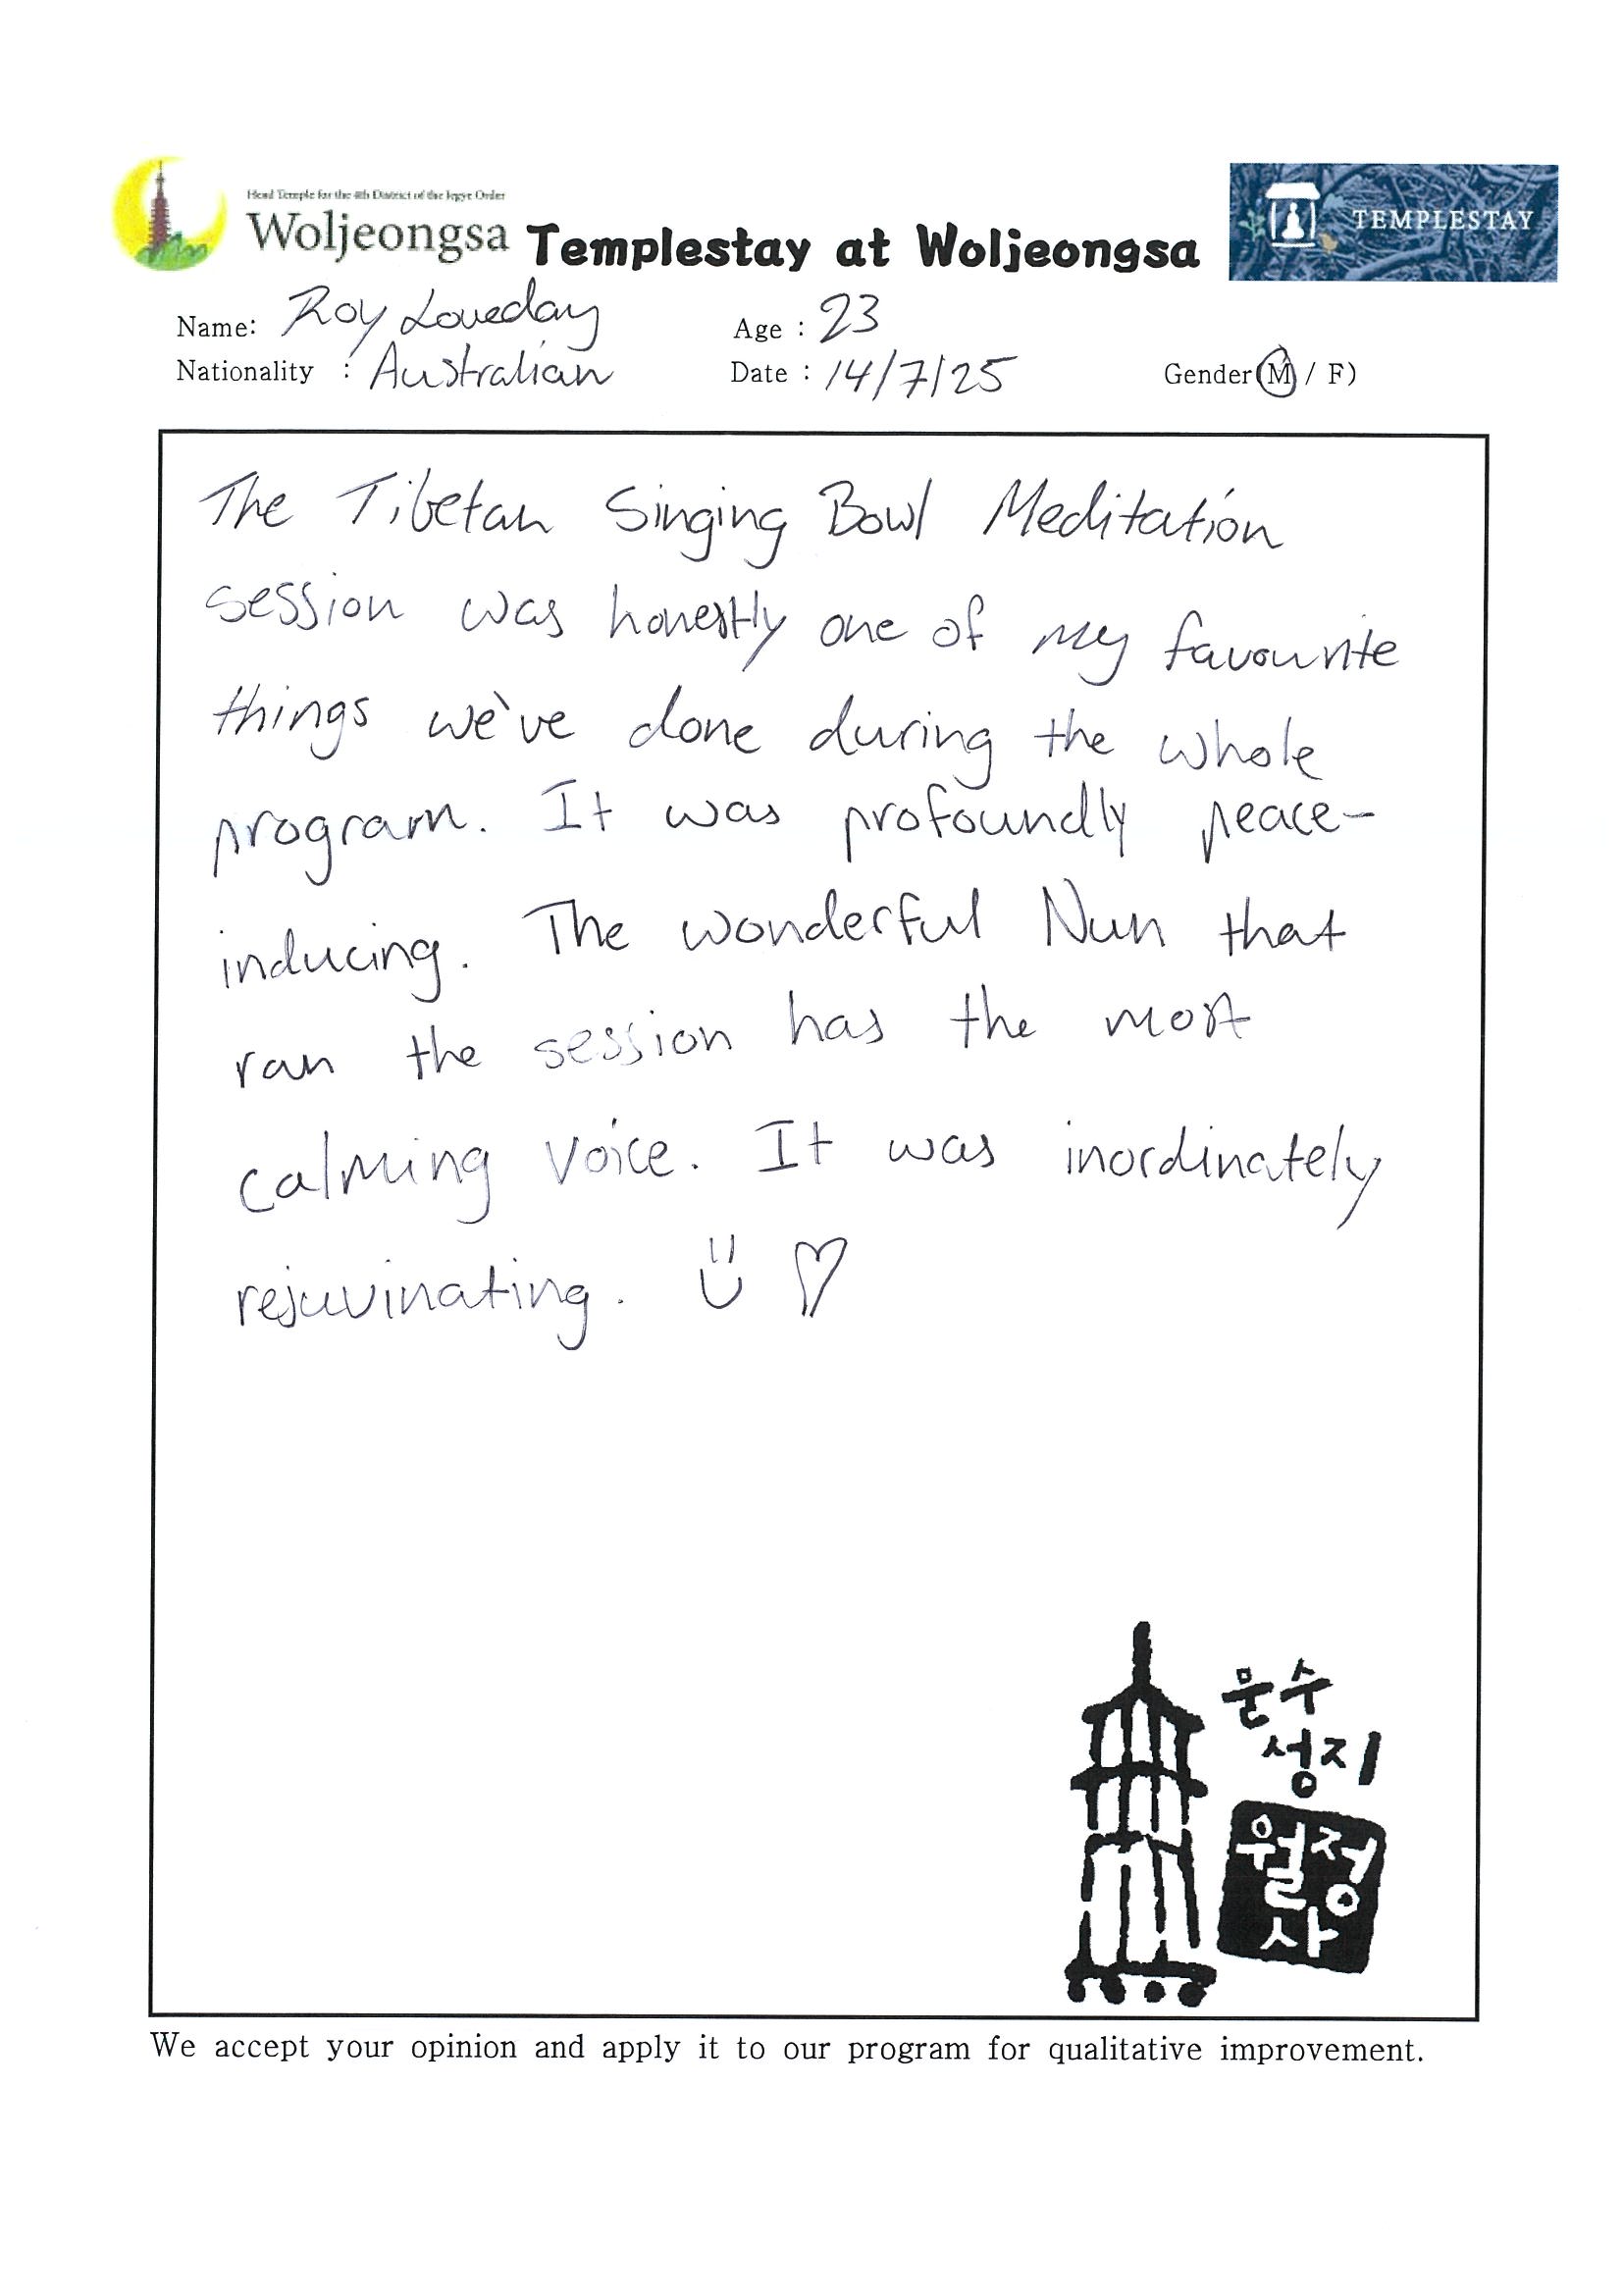 Head Temple for the 4th District of the Jogye Order
Woljeongsa
Templestay at Woljeongsa
TEMPLESTAY
Name: Roy Loveday
Age : 23
Nationality : Australian
Date : 14/7/25
Gender(M / F)
The Tibetan Singing Bowl Meditation
session was honestly one of my favourite
things we've done during the whole
program. It was profoundly peace-
inducing. The wonderful Nun that
ran the session has the most
calming voice. It was inordinately
rejuvinating.
문수
성지
월정
사
We accept your opinion and apply it to our program for qualitative improvement.